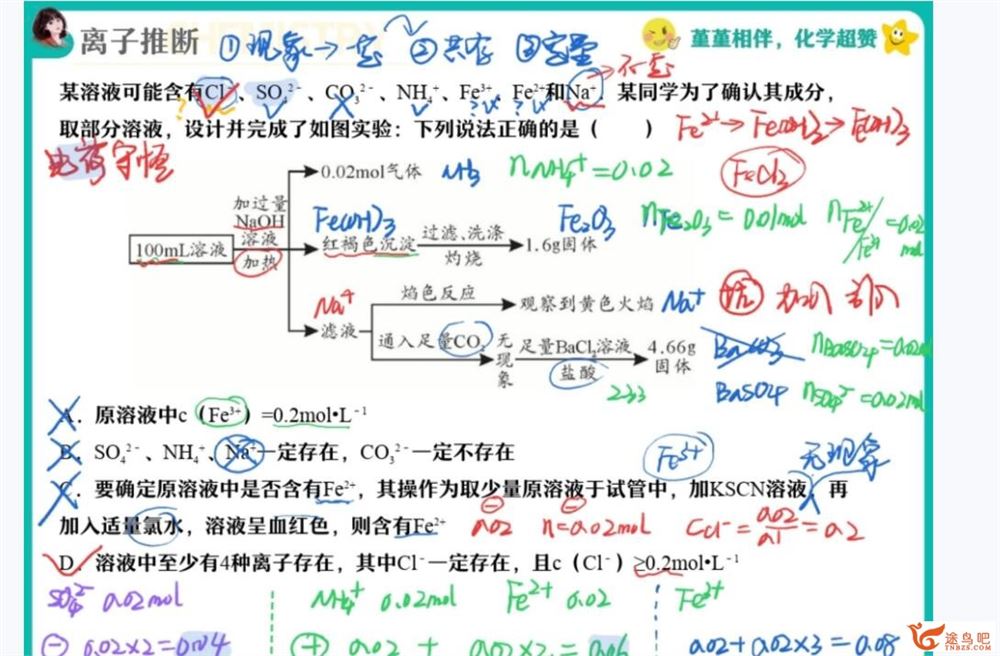 离子推断 ①现象→定 ②共存 ③定量 董董相伴，化学超赞
→不定
某溶液可能含有Cl⁻、SO₄²⁻、CO₃²⁻、NH₄⁺、Fe³⁺、Fe²⁺和Na⁺，某同学为了确认其成分，
取部分溶液，设计并完成了如图实验：下列说法正确的是（ ） Fe²⁺→Fe(OH)₂→Fe(OH)₃
电荷守恒
0.02mol气体 NH₃ nNH₄⁺=0.02 FeCl₃
加过量
NaOH
溶液
加热
100mL溶液
Fe(OH)₃ Fe₂O₃ nFe₂O₃=0.01mol nFe²⁺/Fe³⁺=0.02mol
红褐色沉淀 过滤、洗涤 灼烧 1.6g固体
Na⁺
滤液
焰色反应 观察到黄色火焰 Na⁺
通入足量CO₂ 无现象 足量BaCl₂溶液 盐酸 4.66g固体
BaCO₃ nBaSO₄=0.02mol
233 BaSO₄ nSO₄²⁻=0.02mol
A．原溶液中c（Fe³⁺）=0.2mol•L⁻¹
B．SO₄²⁻、NH₄⁺、Na⁺一定存在，CO₃²⁻一定不存在 Fe³⁺ 无现象
C．要确定原溶液中是否含有Fe²⁺，其操作为取少量原溶液于试管中，加KSCN溶液，再
加入适量氯水，溶液呈血红色，则含有Fe²⁺ 0.02 n=0.02mol CCl⁻=0.02/0.1=0.2
D．溶液中至少有4种离子存在，其中Cl⁻一定存在，且c（Cl⁻）≥0.2mol•L⁻¹
SO₄²⁻ 0.02mol NH₄⁺ 0.02mol Fe²⁺ 0.02 Fe³⁺
⊖ 0.02×2=0.04 ⊕ 0.02 + 0.02×2=0.06 0.02+0.02×3=0.08
途鸟吧
TNBZS.COM